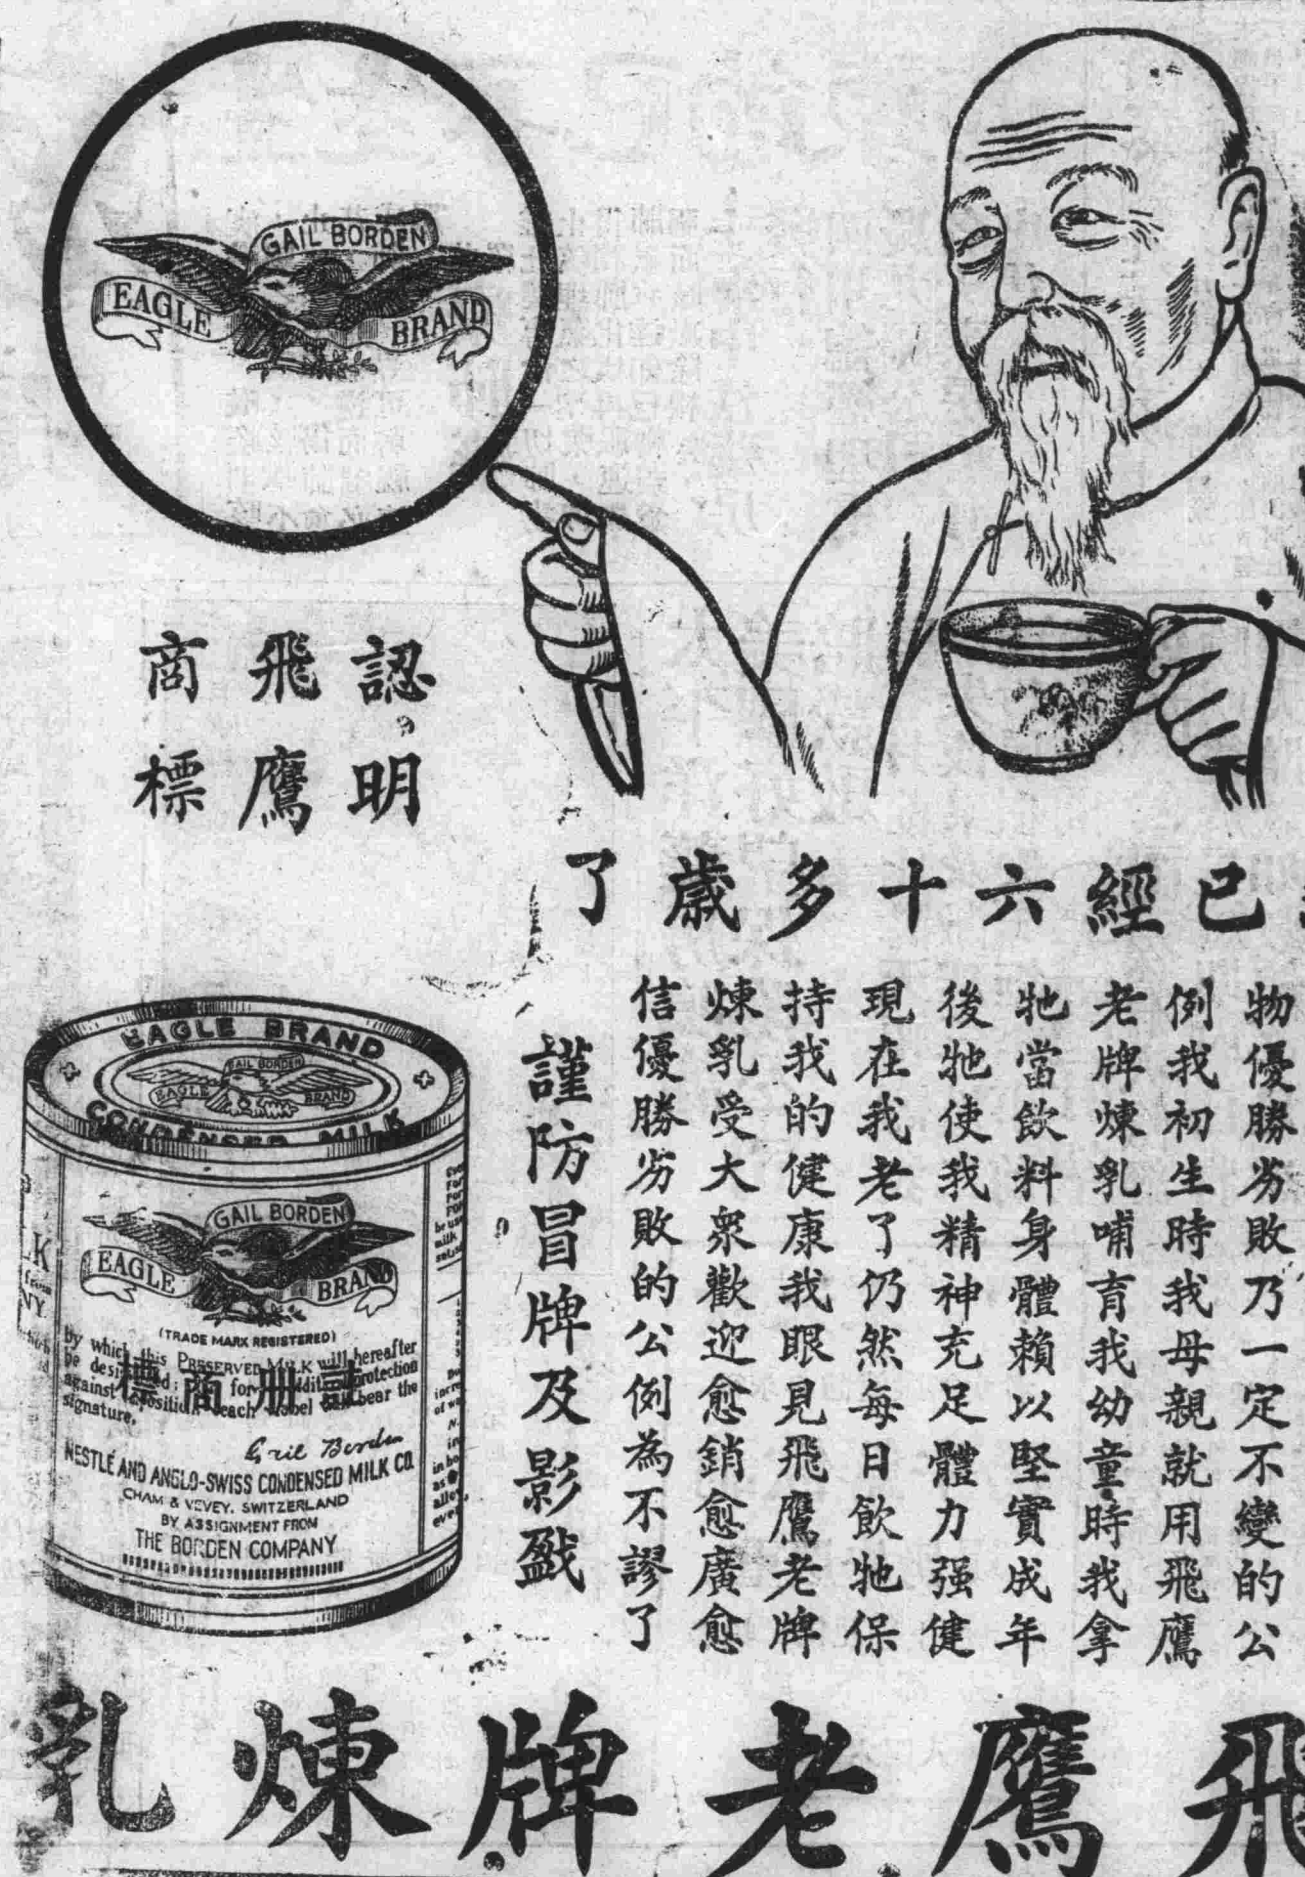 GAIL BORDEN
EAGLE BRAND
認明
飛鷹
商標
已經六十多歲了
物優勝劣敗乃一定不變的公
例我初生時我母親就用飛鷹
老牌煉乳哺育我幼童時我拿
牠當飲料身體賴以堅實成年
後牠使我精神充足體力强健
現在我老了仍然每日飲牠保
持我的健康我眼見飛鷹老牌
煉乳受大衆歡迎愈銷愈廣愈
信優勝劣敗的公例為不謬了
謹防冒牌及影戤
EAGLE BRAND
GAIL BORDEN
EAGLE BRAND
CONDENSED MILK
GAIL BORDEN
EAGLE BRAND
(TRADE MARK REGISTERED)
by which this PRESERVED MILK will hereafter
be for protection
against each label bear the
signature,
註册商標
Gail Borden
NESTLÉ AND ANGLO-SWISS CONDENSED MILK CO.
CHAM & VEVEY, SWITZERLAND
BY ASSIGNMENT FROM
THE BORDEN COMPANY
飛鷹老牌煉乳